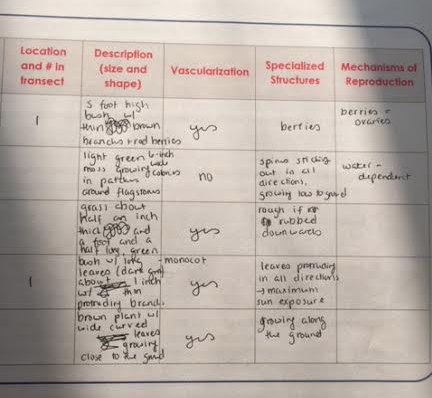 Location
and # in
transect
Description
(size and
shape)
Vascularization
Specialized
Structures
Mechanisms of
Reproduction
1
5 foot high
bush w/
thin brown
branches + red berries
yes
berries
berries =
ovaries
light green 6-inch
moss growing wide
in pattern colonies
around flagstones
no
spines sticking
out in all
directions,
growing low to ground
water-
dependent
grass about
half an inch
thick and
a foot and a
half long, green
yes
rough if
rubbed
downwards
1
bush w/ long
leaves (dark green)
about 1 inch
w/ thin
protruding branch
-monocot
yes
leaves protruding
in all directions
→ maximum
sun exposure
brown plant w/
wide curved
leaves
growing
close to the ground
yes
growing along
the ground